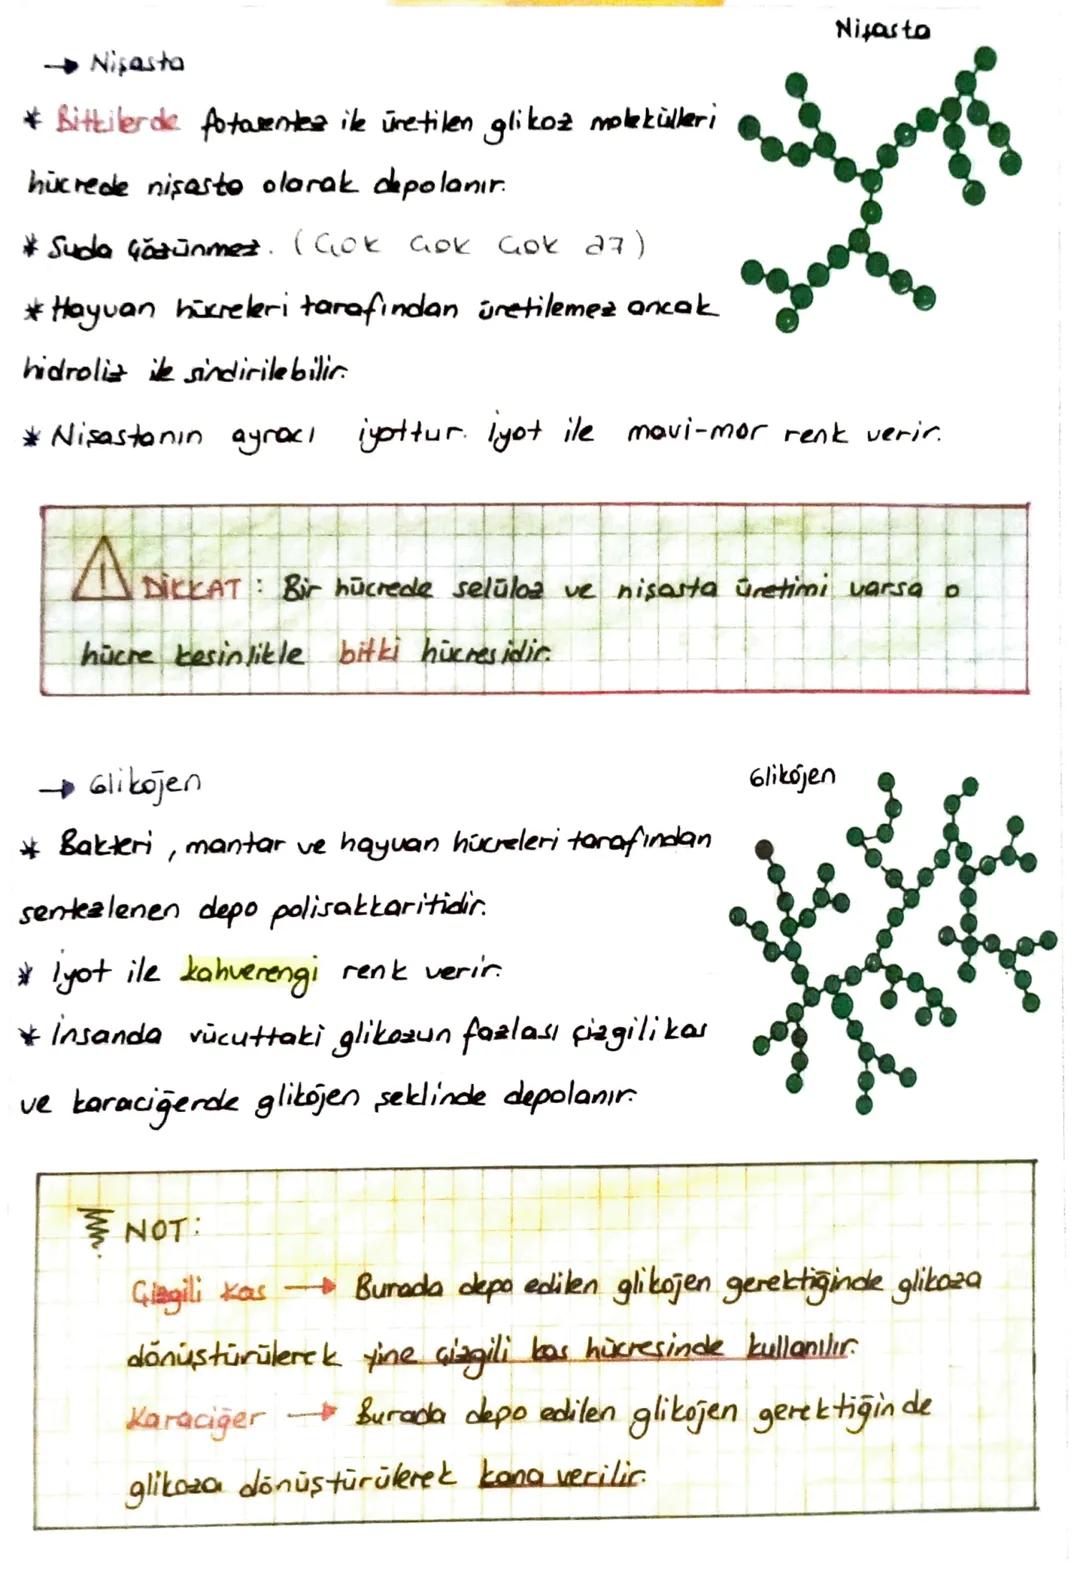 Nişasta
→ Nişasta
* Bitkilerde fotosentez ile üretilen glikoz molekülleri
hücrede nişasta olarak depolanır.
* Suda çözünmez. (Çok çok çok az)
* Hayvan hücreleri tarafından üretilemez ancak
hidroliz ile sindirilebilir.
* Nişastanın ayracı iyottur. İyot ile mavi-mor renk verir.
DİKKAT : Bir hücrede selüloz ve nişasta üretimi varsa o
hücre kesinlikle bitki hücresidir.
→ Glikojen
Glikojen
* Bakteri, mantar ve hayvan hücreleri tarafından
sentezlenen depo polisakkaritidir.
* İyot ile kahverengi renk verir.
* İnsanda vücuttaki glikozun fazlası çizgili kas
ve karaciğerde glikojen şeklinde depolanır.
NOT:
Çizgili kas → Burada depo edilen glikojen gerektiğinde glikoza
dönüştürülerek yine çizgili kas hücresinde kullanılır.
Karaciğer → Burada depo edilen glikojen gerektiğinde
glikoza dönüştürülerek kana verilir.